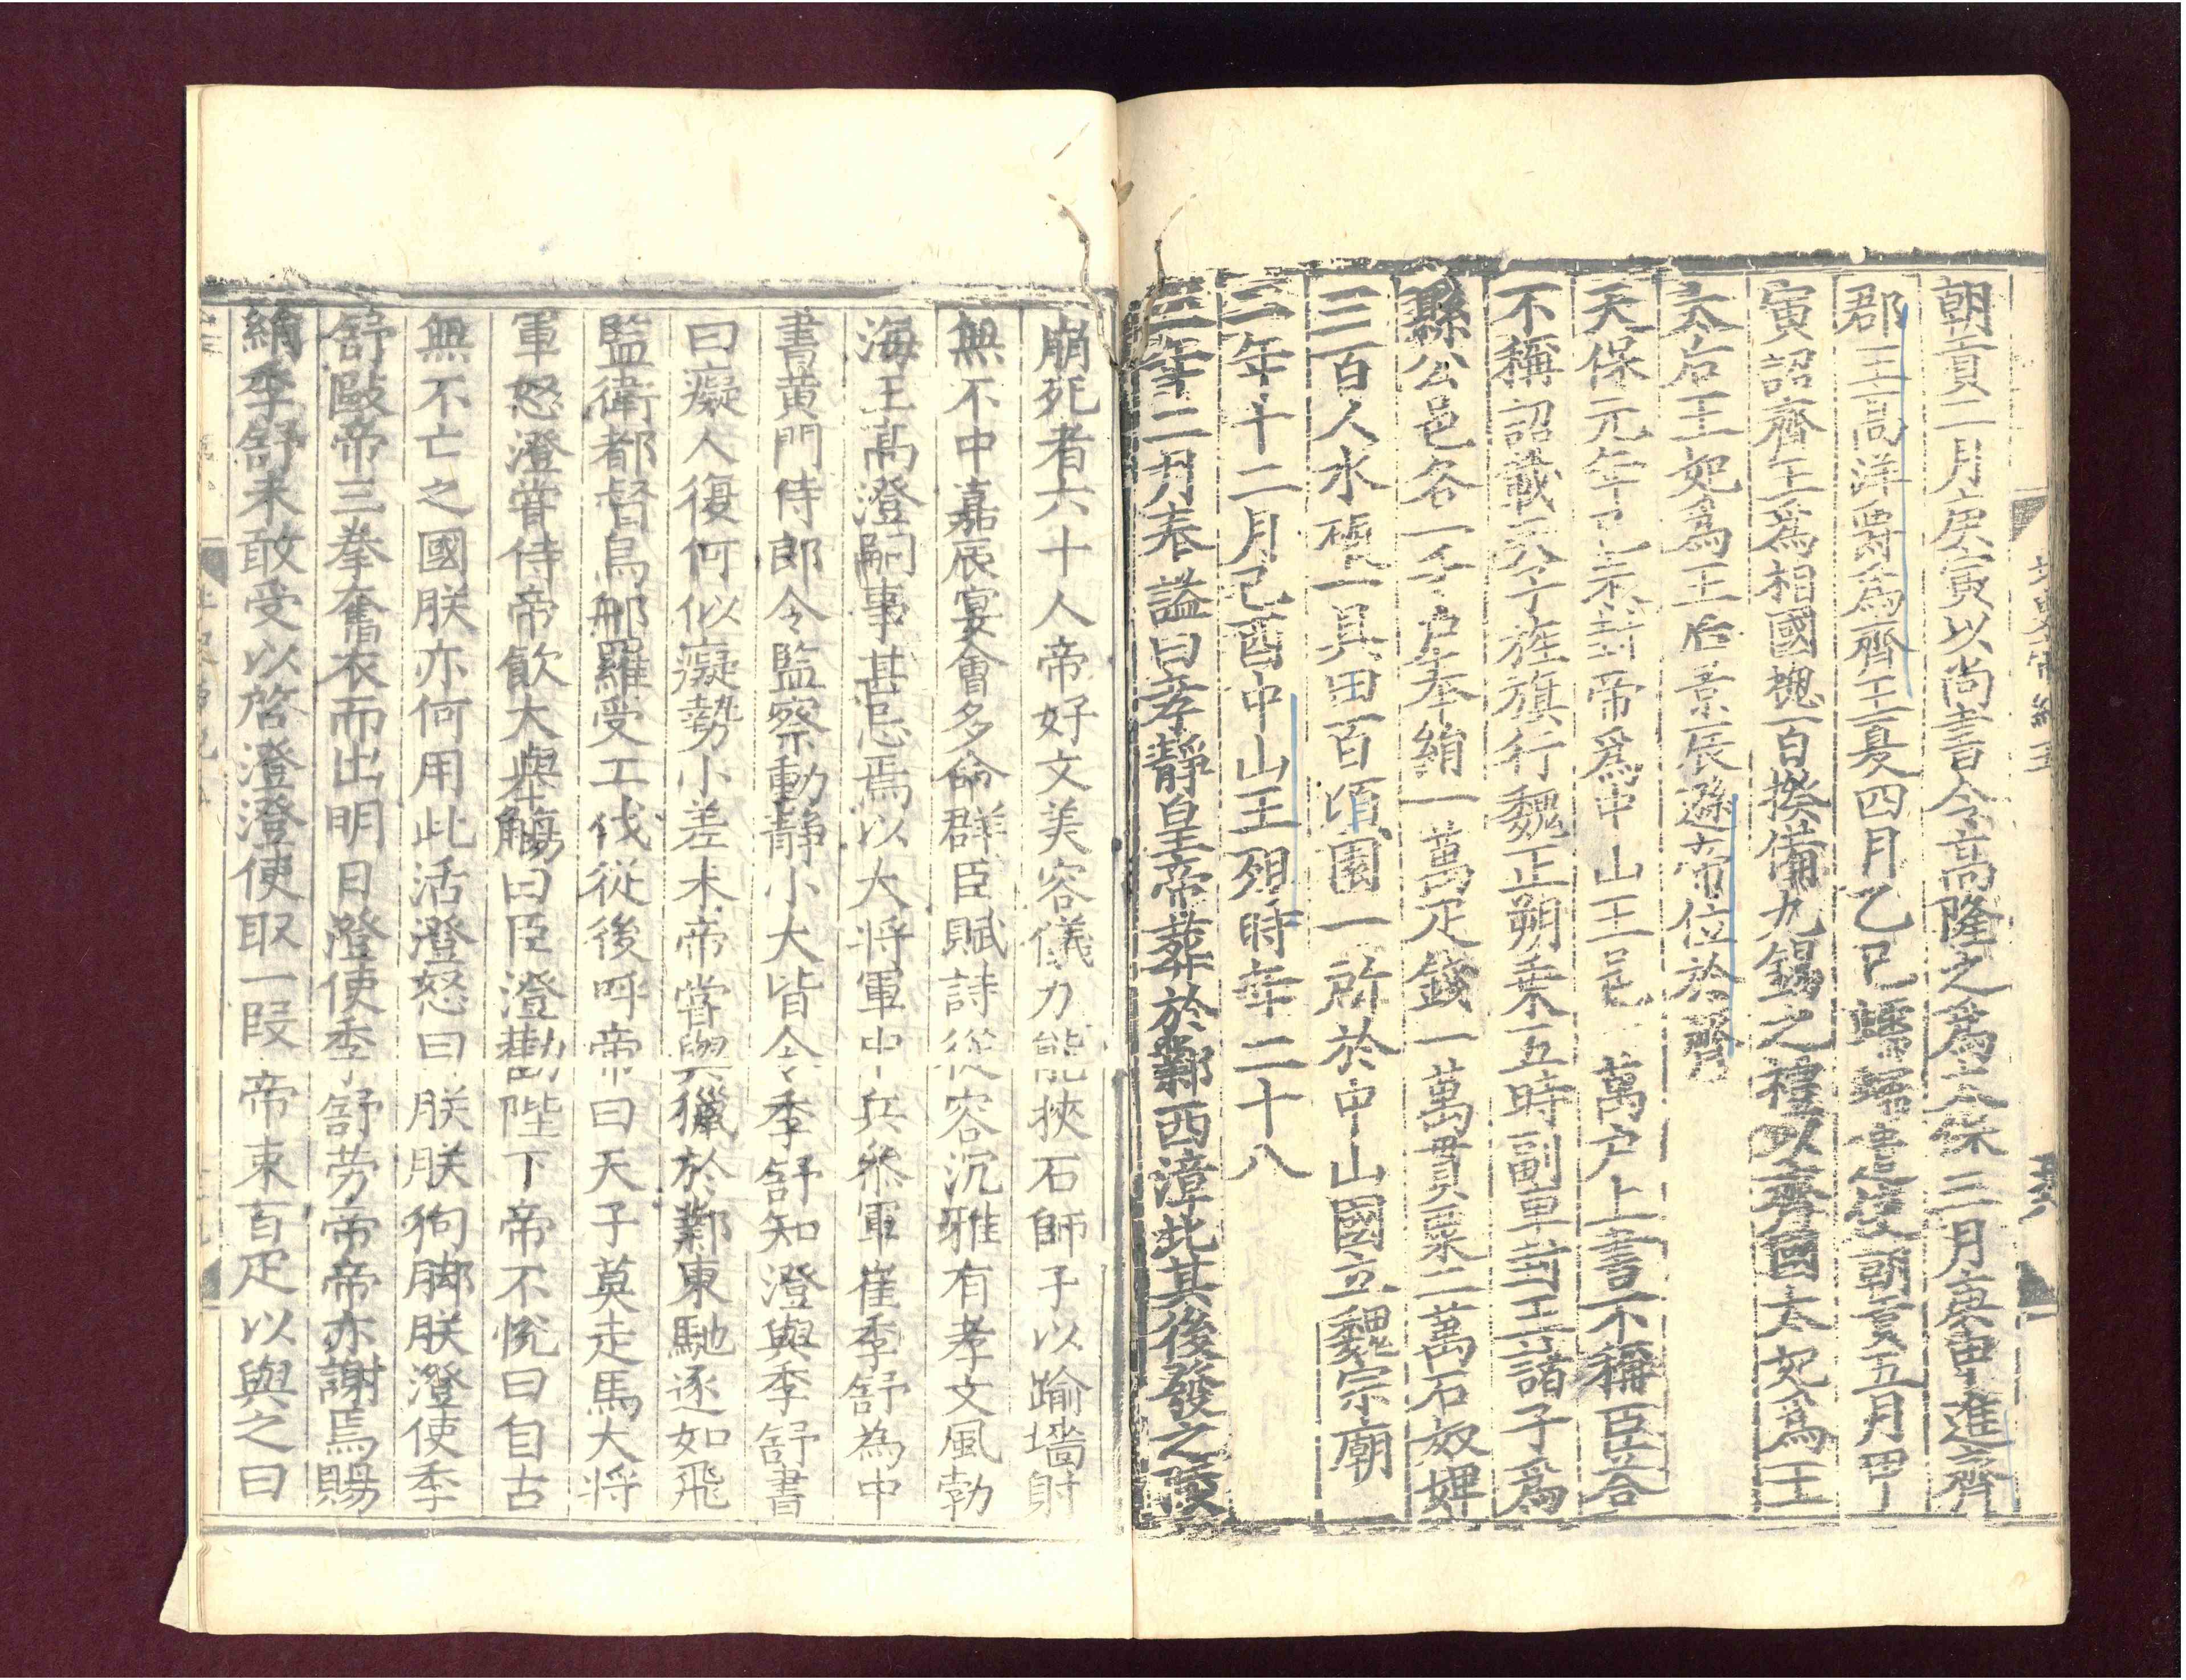 朝貢二月庚寅以尚書令高隆之爲太保三月庚申進齊
郡王高洋爵爲齊王夏四月乙巳蠕蠕遣使朝貢五月甲
寅詔齊王爲相國揔百揆備九錫之禮以齊國太妃爲王
太后王妃爲王后景辰遜帝位於齊
天保元年己未封帝爲中山王邑一萬户上書不稱臣荅
不稱詔載天子旌旗行魏正朔乗五時副車封王諸子爲
縣公邑各一千户奉絹一萬疋錢一萬貫粟二萬石奴婢
三百人水碾一具田百頃園一所於中山國立魏宗廟
二年十二月己酉中山王殂時年二十八
三年二月奉謚曰孝靜皇帝葬於鄴西漳北其後發之陵
崩死者六十人帝好文美容儀力能挾石師子以踰墻射
無不中嘉辰宴會多命群臣賦詩從容沉雅有孝文風勃
海王高澄嗣事甚忌焉以大將軍中兵叅軍崔季舒為中
書黄門侍郎令監察動靜小大皆令季舒知澄與季舒書
曰癡人復何似癡勢小差未帝嘗與獵於鄴東馳逐如飛
監衛都督烏那羅受工伐從後呼帝曰天子莫走馬大將
軍怒澄嘗侍帝飲大舉觴曰臣澄勸陛下帝不悅曰自古
無不亡之國朕亦何用此活澄怒曰朕朕狗脚朕澄使季
舒毆帝三拳奮衣而出明日澄使季舒勞帝帝亦謝焉賜
絹季舒未敢受以啓澄澄使取一段帝束百疋以與之曰